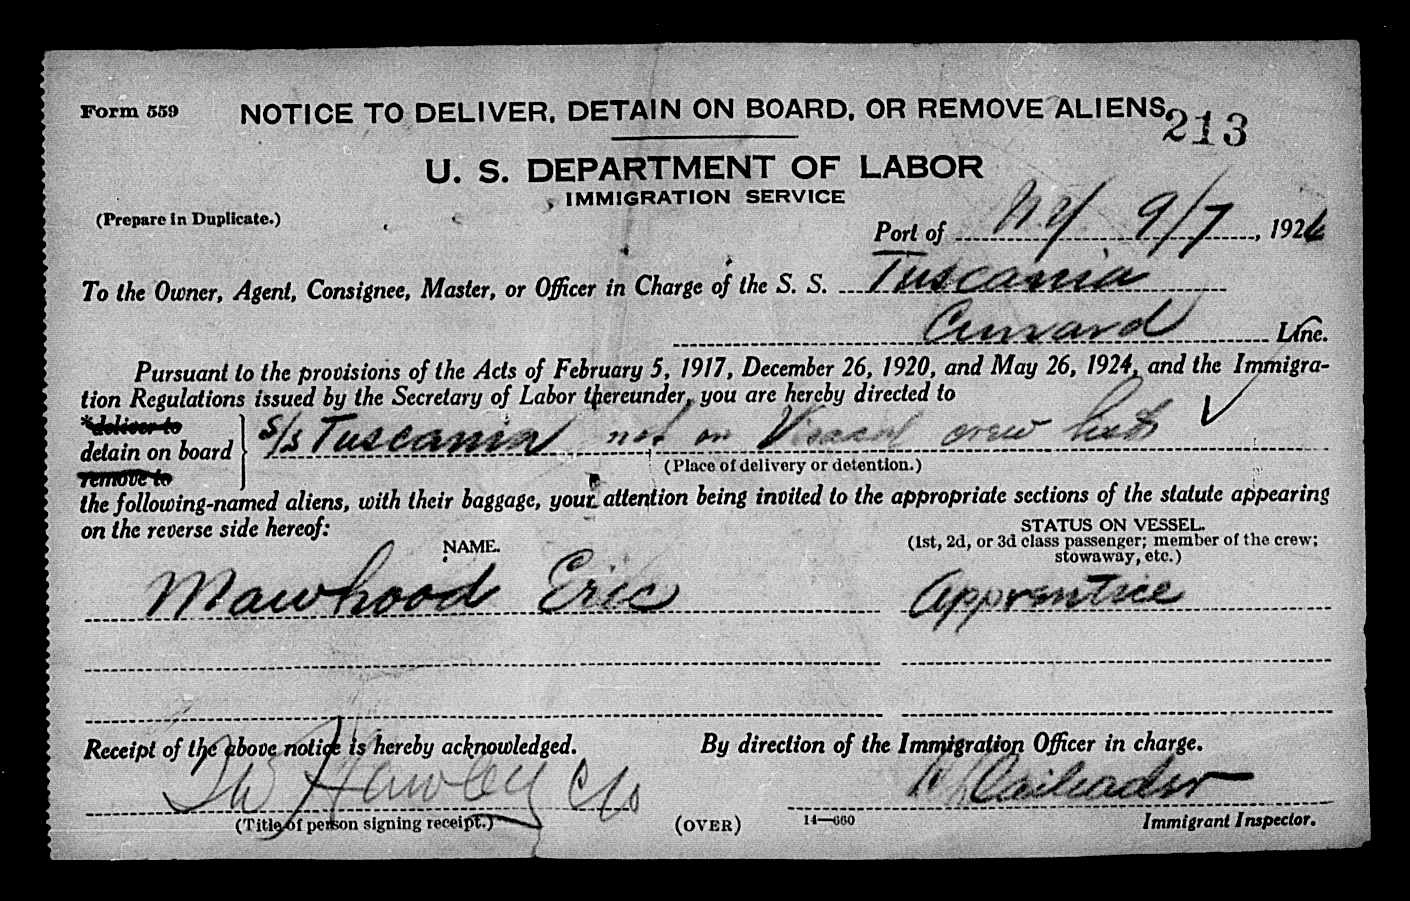 Form 559 NOTICE TO DELIVER, DETAIN ON BOARD, OR REMOVE ALIENS 213
U. S. DEPARTMENT OF LABOR
IMMIGRATION SERVICE
(Prepare in Duplicate.)
Port of N.Y. 9/7, 1926
To the Owner, Agent, Consignee, Master, or Officer in Charge of the S. S. Tuscania
Cunard Line.
Pursuant to the provisions of the Acts of February 5, 1917, December 26, 1920, and May 26, 1924, and the Immigra-
tion Regulations issued by the Secretary of Labor thereunder, you are hereby directed to
*deliver to
detain on board } S/S Tuscania not on Vessel crew list ✓
remove to
(Place of delivery or detention.)
the following-named aliens, with their baggage, your attention being invited to the appropriate sections of the statute appearing
on the reverse side hereof:
STATUS ON VESSEL.
NAME. (1st, 2d, or 3d class passenger; member of the crew;
stowaway, etc.)
Mawhood Eric Apprentice
Receipt of the above notice is hereby acknowledged. By direction of the Immigration Officer in charge.
Hawley
(Title of person signing receipt.) (OVER) 14—660 Immigrant Inspector.